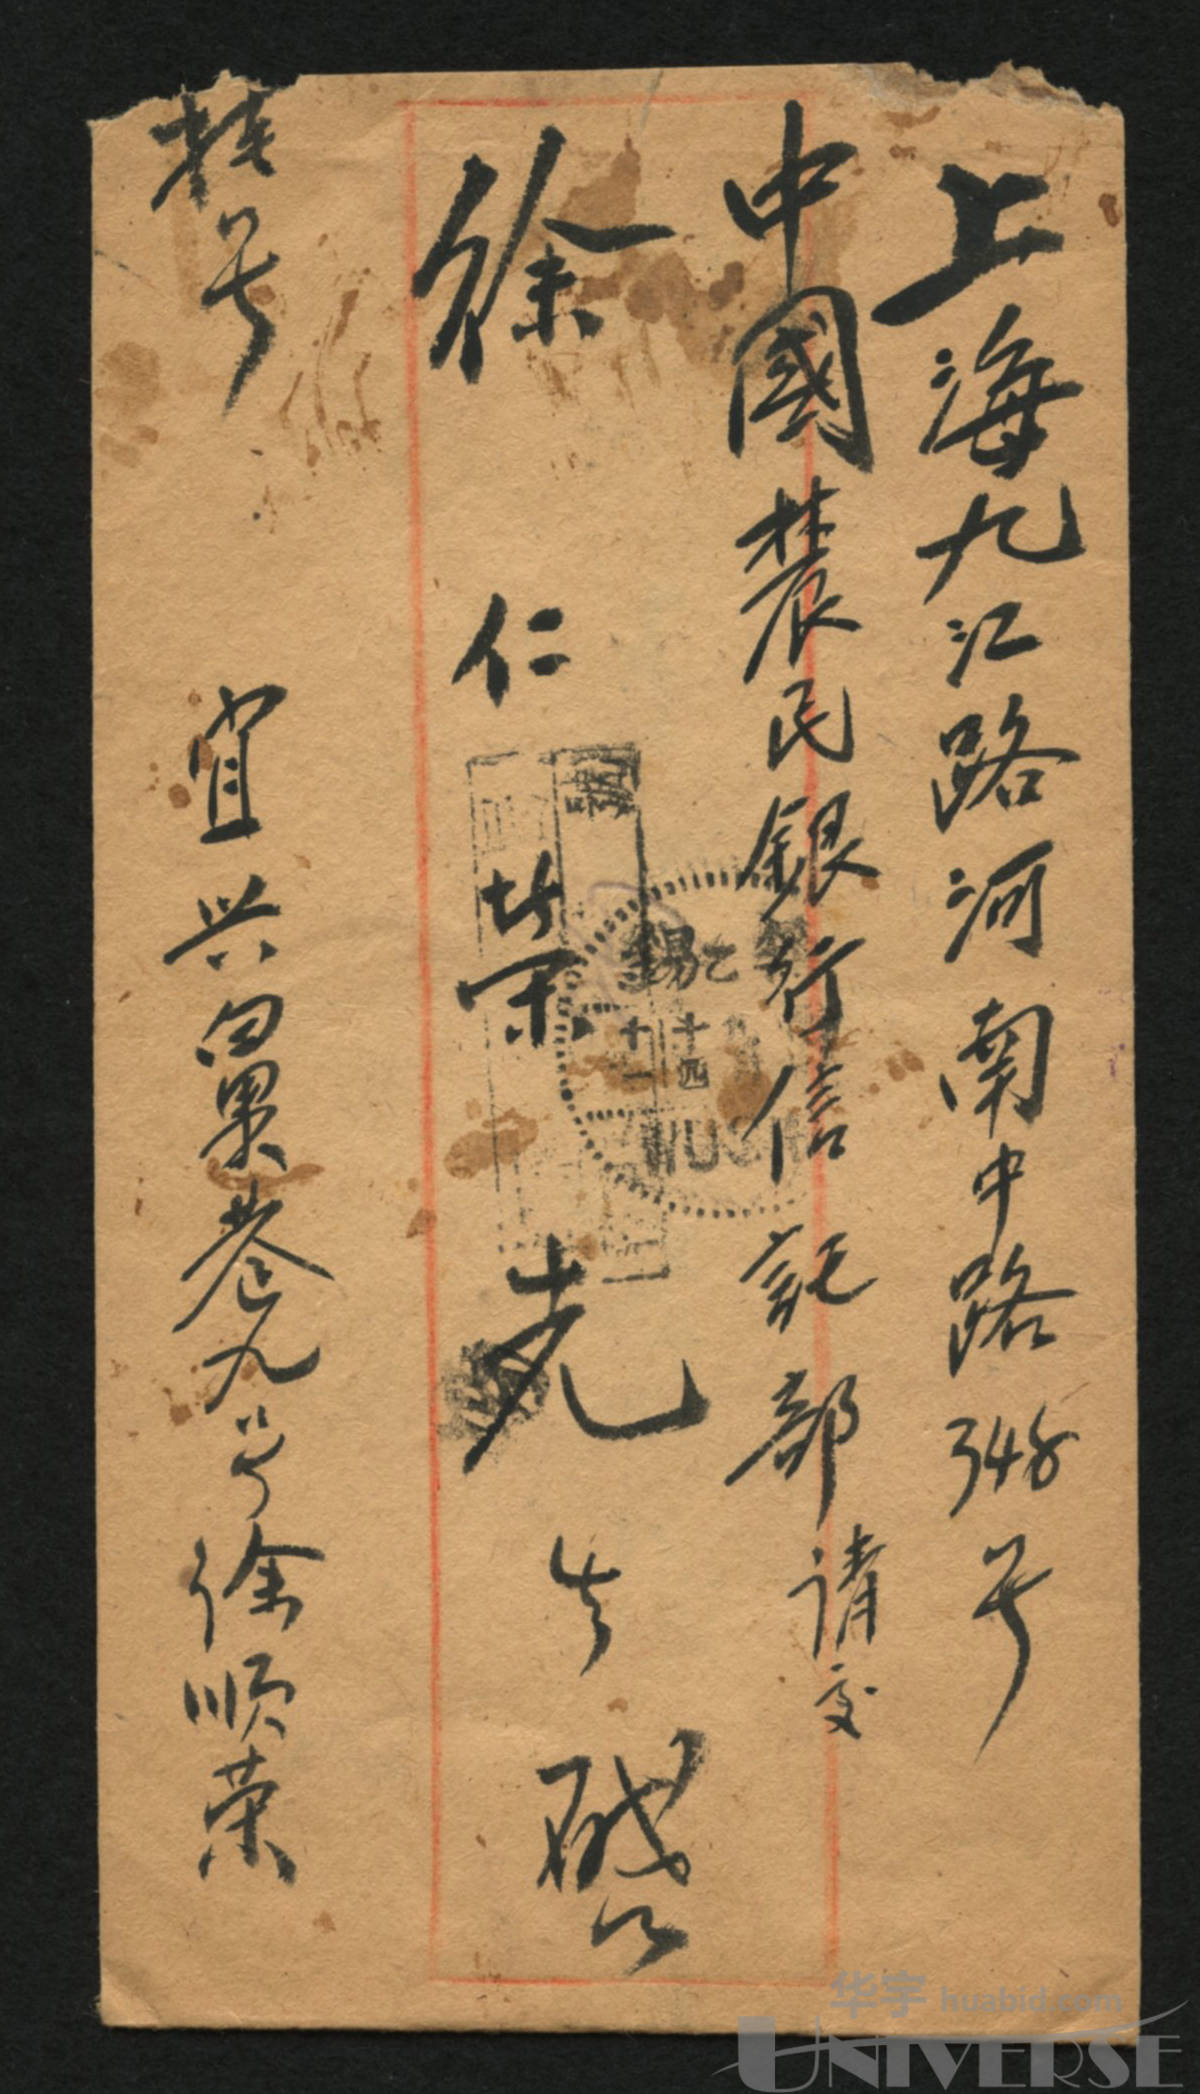 上海九江路河南中路348号
中國農民銀行信託部请交
徐仁荣先生啟
挂号
宜兴白果巷九号徐顺荣
錫
七
十四
十一
WUSIH
华宇 huabid.com
UNIVERSE